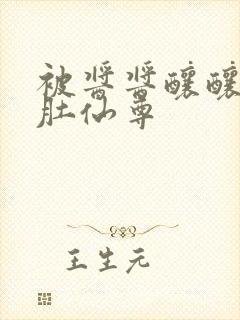 被酱酱酿酿
肚仙尊
王生元